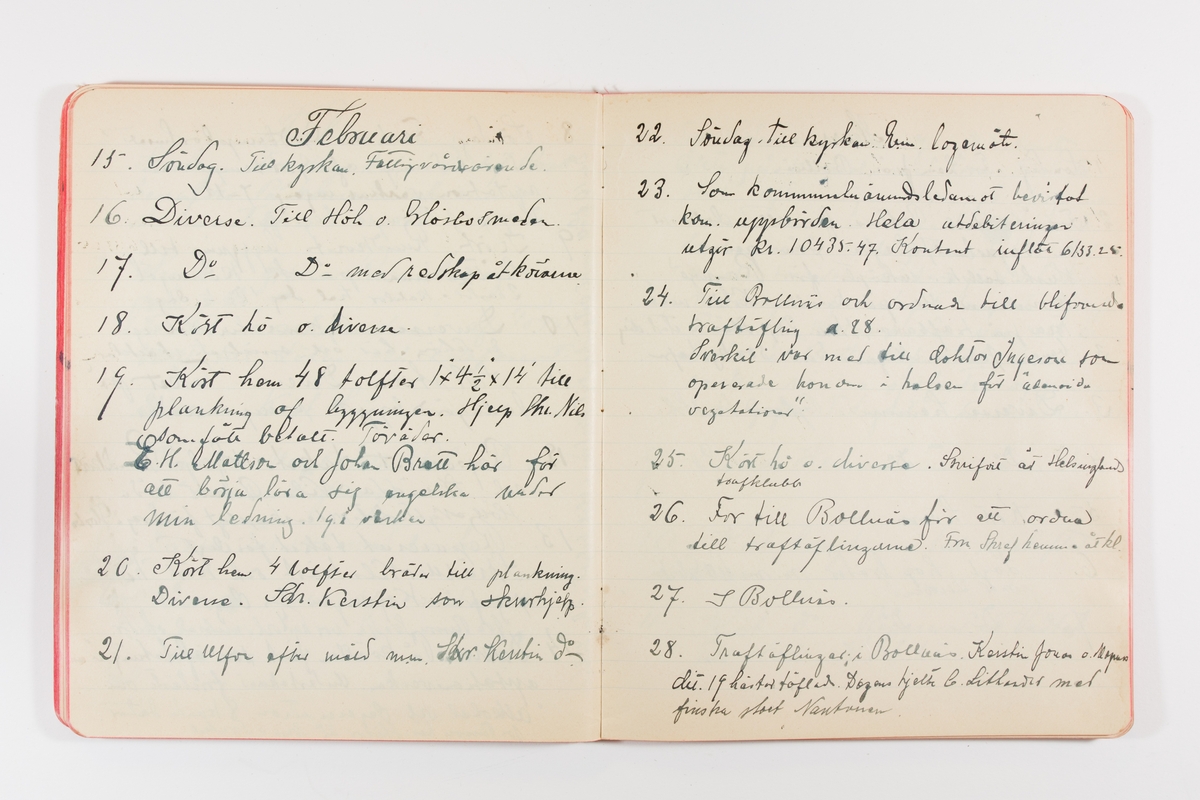 Februari
15. Söndag. Till kyrkan. Fattigvårdsärende.
16. Diverse. Till Höh o. Glösbosmeden
17. Do Do med redskap åt körarne.
18. Kört hö o. diverse.
19. Kört hem 48 tolfter 1x4½x14' till
plankning af byggningen. Hjelp Skr. Nils
som fått betalt. Töväder.
E. H. Mattson och Johan Bratt här för
att börja lära sig engelska under
min ledning. 19 i veckan
20. Kört hem 4 tolfter bräder till plankning.
Diverse. Skr. Kerstin som skurhjelp.
21. Till Ulfon efter mäld mm. Skr. Kerstin do
22. Söndag. Till kyrkan. Em. logemöte.
23. Som kommunalnämndsledamot bevistat
kom. uppbörden. Hela utdebiteringen
utgör kr. 10435.47. Kontant inflöt 6133.25.
24. Till Bollnäs och ordnade till blifvande
traftäfling d. 28.
Sverkil var med till doktor Ingeson som
opererade honom i halsen för "adenoida
vegetationer".
25. Kört hö o. diverse. Skrifvit åt Helsinglands
trafklubb
26. For till Bollnäs för att ordna
till traftäflingarne. Fru hemma åt kl.
27. I Bollnäs.
28. Traftäflingar i Bollnäs. Kerstin Jonas o. Magnus
dit. 19 hästar täflade. Dagens hjelte C. Lithander med
finska stoet